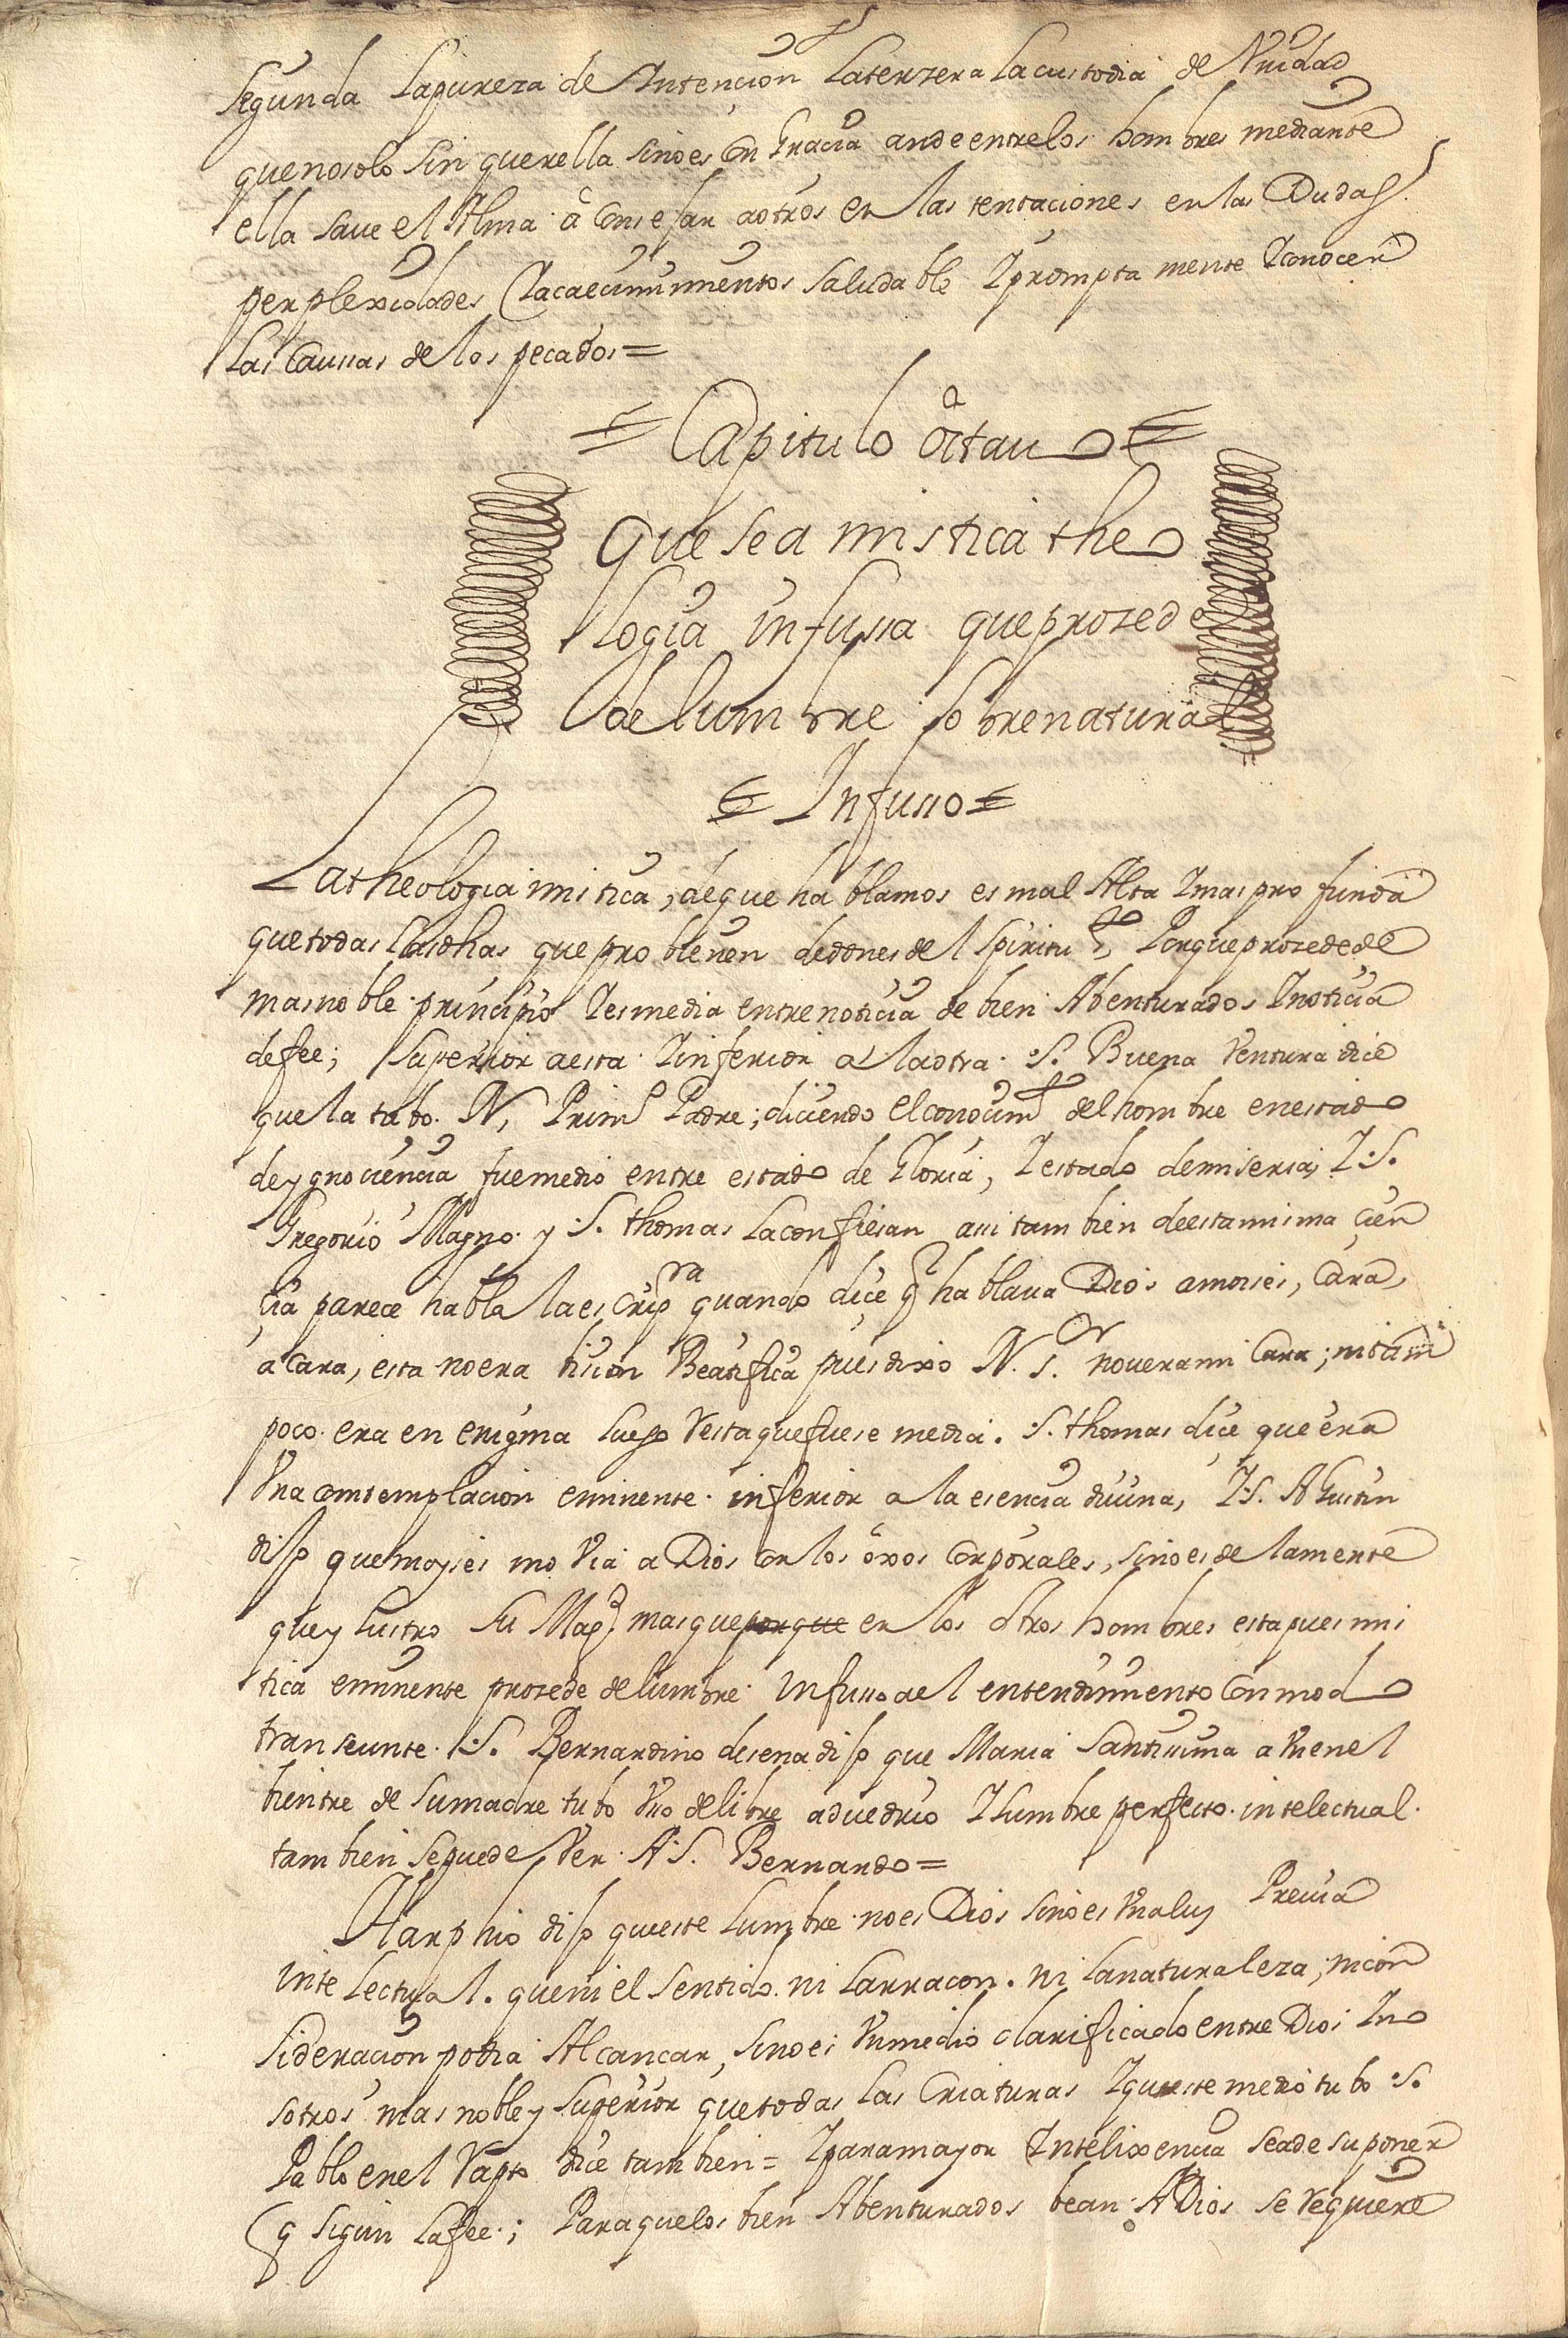 Segunda Lapureza de Intencion Laterzera Lacustodia de Vnidad
quenosolo sin querella sinoes Con Gracia andeentrelos hombres mediante
ella saue el Alma â Consejar aotros en las tentaciones en las Dudas
perplexidades Iacaecimimientos saludable Iprompta mente Iconocer
Las Caussas de los pecados=
= Capitulo octauo =
Que sea mistica theo
logia infussa queprozede
delumbre sobrenatural
= Infusso =
La theologia mistica, deque hablamos es mal Alta Imas profunda
quetodas lasdhas que probienen dedones del Spiritu So, Porqueprozedede
masnoble principio Iesmedia entrenoticia de bien Abenturados Inoticia
defee; superior aesta Iinferior a laotra. S. Buena Ventura dice
quela tubo. N, Prim.o Padre; diciendo elconocim.to delhombre enestado
deygnociencia fuemedio entre estado de Gloria, Iestado demiseria, I.S.
Gregorio Magno. y S. thomas Laconfiesan assi tambien deestamisma cien
cia parece habla laes Crip.ra quando dice q hablaua Dios amoises, Cara,
a Cara, esta noera bision Beatifica puesdixo N. S.or noueramni Cara; nitam
poco. era en enigma Luego Restaquefuese media. S. thomas dice queera
Vna comtemplacion eminente. inferior a la esencia diuina, I.S. Agustin
disp quemoyses mo Via a Dios con los óxos Corporales, sinoes de lamente
quey Lustro Su Mag.d masqueporque en los otros hombres estapues mis
tica eminente prozede delumbre infusso del entendimiento Conmodo
transeunte. S. Bernardino desena disp que Maria Santissima a Vn enel
bientre de sumadre tubo Vso delibre aduedrio Ilumbre perfecto. intelectual.
tambien sepuede Ver. A S. Bernardo=
Harphio disp queeste Lumbre noes Dios sinoes Vnaluz Preuia
inteLectual. queni el sentido. ni Larracon. ni Lanaturaleza; nicon
sideracion podia Alcancar, sinoes Vnmedio clarificado entre Dios Ino
sotros mas nobley superior quetodas Las Criaturas Iqueeste medio tubo S.
Pablo enel Rapto dice tambien= Iparamayor Intelixencia seade suponer
q sigun Lafee.; Paraquelos bien Abenturados bean A Dios se Requiere